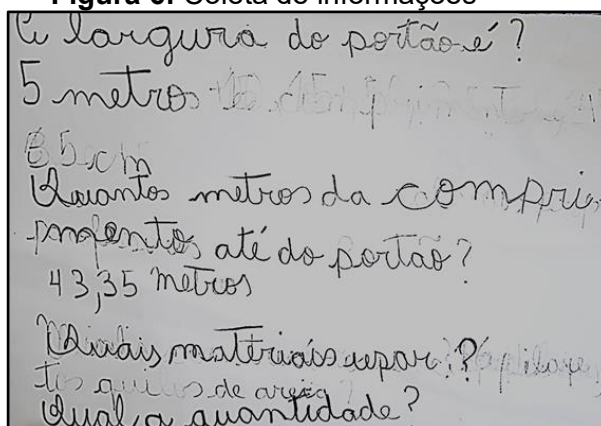 Figura 3. Coleta de informações
A largura do portão é?
5 metros
35 cm
Quantos metros da compri
mento até do portão?
43,35 metros
Quais materiais usar?
de areia
Qual a quantidade?